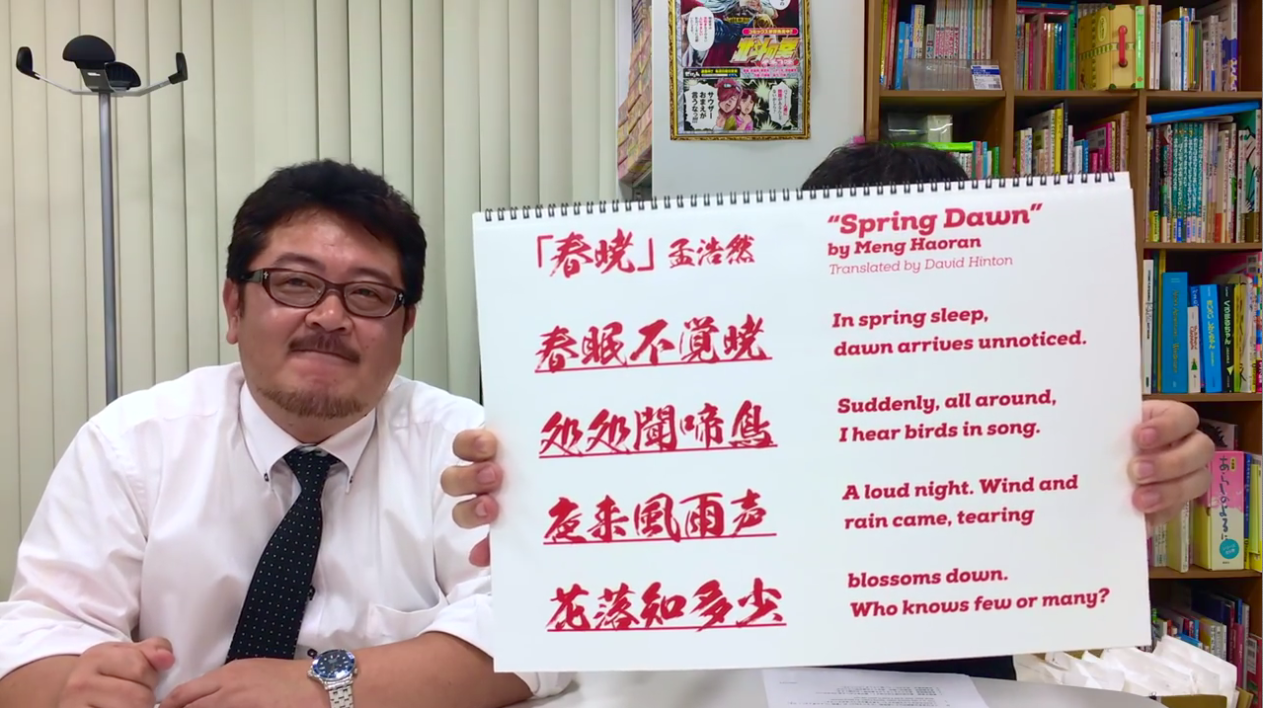 「春暁」孟浩然
春眠不覚暁
処処聞啼鳥
夜来風雨声
花落知多少
“Spring Dawn”
by Meng Haoran
Translated by David Hinton
In spring sleep,
dawn arrives unnoticed.
Suddenly, all around,
I hear birds in song.
A loud night. Wind and
rain came, tearing
blossoms down.
Who knows few or many?
サウザー
おまえが
言うなっ!!